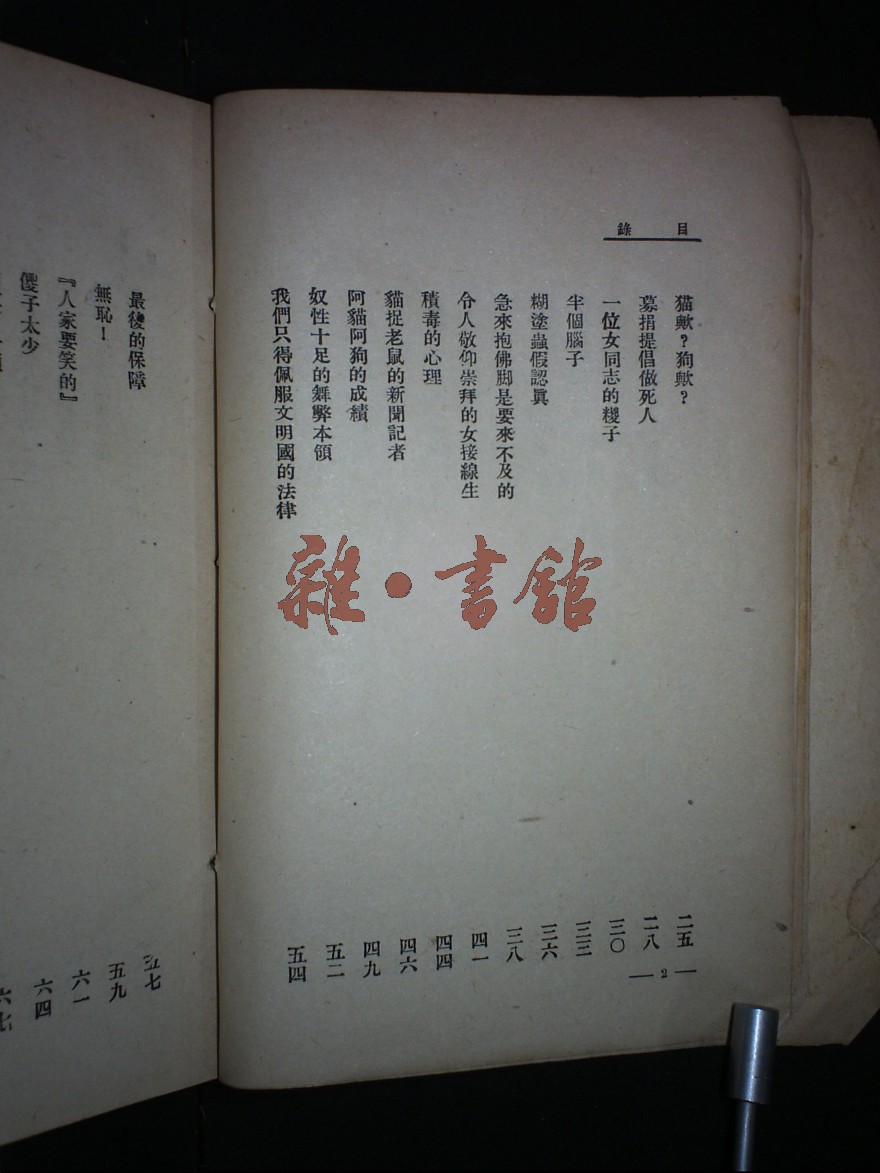 目錄
猫歟?狗歟?
二五
募捐提倡做死人
二八
一位女同志的糉子
三〇
半個腦子
三三
糊塗蟲假認眞
三六
急來抱佛脚是要來不及的
三八
令人敬仰崇拜的女接線生
四一
積毒的心理
四四
貓捉老鼠的新聞記者
四六
阿貓阿狗的成績
四九
奴性十足的舞弊本領
五二
我們只得佩服文明國的法律
五四
—2—
最後的保障
五七
無恥!
五九
『人家要笑的』
六一
傻子太少
六四
六七
雜·書館